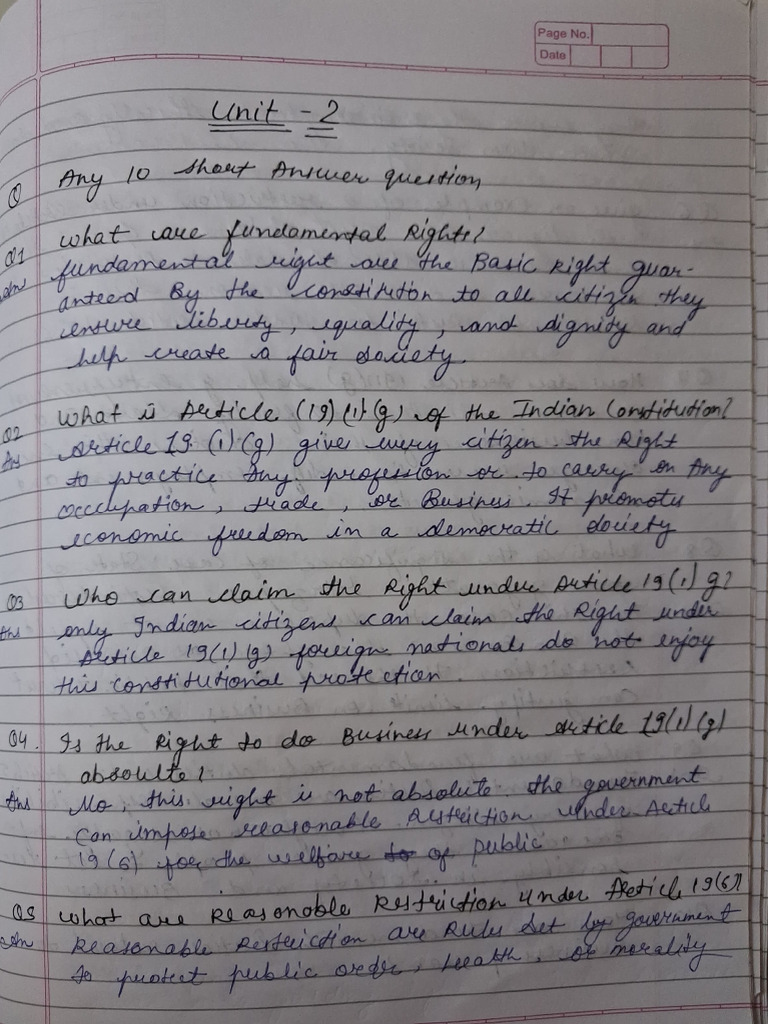 Page No.
Date
Unit - 2
Q Any 10 short Answer question
Q1 What are fundamental Rights?
Ans fundamental right are the Basic Right guar-
anteed By the constitution to all citizen they
ensure liberty, equality, and dignity and
help create a fair society.
Q2 What is Article (19) (1) (g) of the Indian Constitution?
Ans Article 19 (1) (g) gives every citizen the Right
to practice Any profession or to carry on Any
occcupation, trade, or Business. It promotes
economic freedom in a democratic society
Q3 Who can claim the Right under Article 19(1) g?
Ans only Indian citizens can claim the Right under
Article 19(1) (g) foreign nationals do not enjoy
this constitutional protection.
Q4. Is the Right to do Business under Article 19(1) (g)
absoulte?
Ans No, this right is not absolute. the government
Can impose reasonable Restriction under Article
19(6) for the welfare of public
Q5 What are Reasonable Restriction Under Article 19(6)?
Ans Reasonable Restriction are Rules Set by government
to protect public order, health, or morality